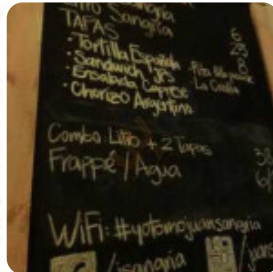 Litro Sangria
TAPAS 6
· Tortilla Española 23
· Sandwich JPS 8
· Ensalada Caprese La Criolla
· Chorizo Argentino
Combo: Litro + 2 Tapas 38
Frappé / Agua 6/
WiFi: #yotomojuansangria
/jsangria